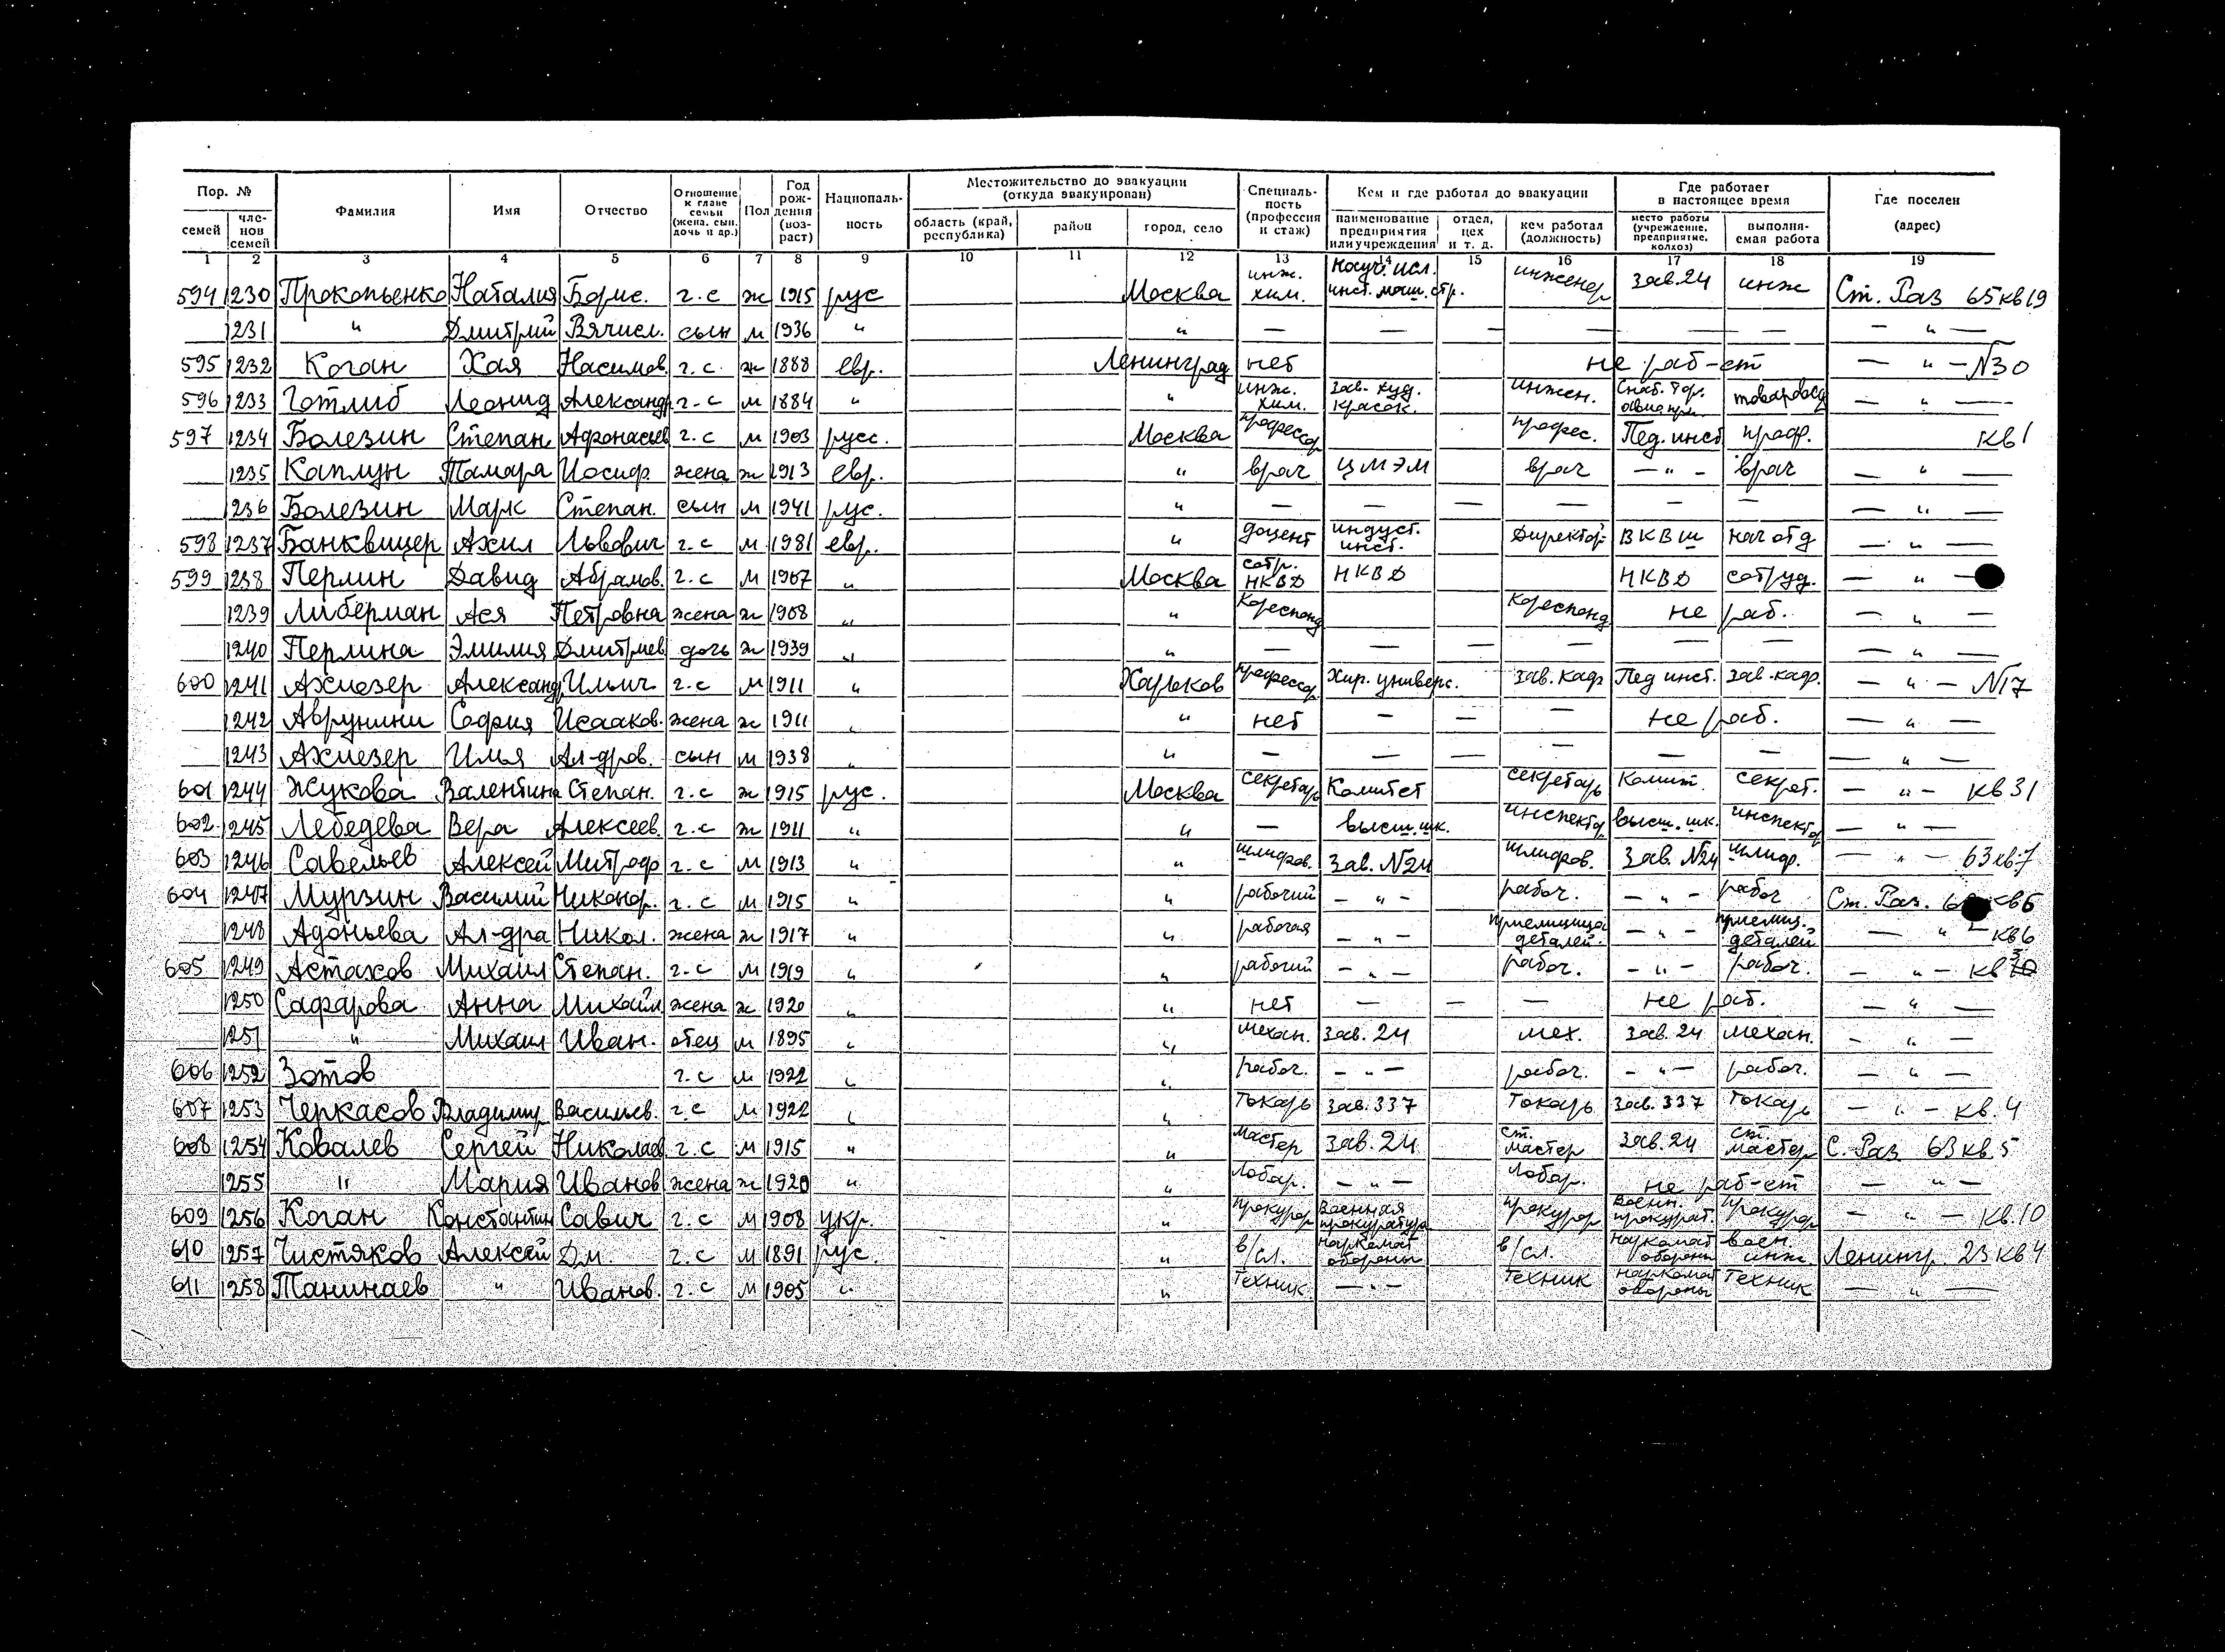 Пор. № Фамилия Имя Отчество Отношение к главе семьи (жена, сын, дочь и др.) Пол Год рождения (возраст) Национальность Местожительство до эвакуации (откуда эвакуирован) Специальность (профессия и стаж) Кем и где работал до эвакуации Где работает в настоящее время Где поселен (адрес)
семей членов семей область (край, республика) район город, село наименование предприятия или учреждения отдел, цех и т. д. кем работал (должность) место работы (учреждение, предприятие, колхоз) выполняемая работа
1 2 3 4 5 6 7 8 9 10 11 12 13 14 15 16 17 18 19
594 1230 Прокопьенко Наталия Борис. г.с ж 1915 рус Москва инж. хим. инст. маш. стр. инженер Зав.24 инж Ст. Раз 65 кв 19
1231 " Дмитрий Вячисл. сын м 1936 " " — — — — — — — " —
595 1232 Коган Хая Насимов. г.с. ж 1888 евр. Ленинград нет не раб-ет — " — N30
596 1233 Готлиб Леонид Александр г-с м 1884 " " инж. хим. Зав. худ. красок. инжен. товаровед — " —
597 1234 Болезин Степан Афонасьев г.с м 1903 русс. Москва профессор профес. Пед. инст проф. кв 1
1235 Каплун Тамара Иосиф. жена ж 1913 евр. " врач ЦМЭМ врач — " — врач — " —
1236 Болезин Марк Степан. сын м 1941 рус. " — — — — — — — " —
598 1237 Банквицер Ахил Львович г.с м 1981 евр. " доцент индуст. инст. Директор ВКВШ нач отд — " —
599 1238 Перлин Давид Абрамов. г.с м 1907 " Москва сотр. НКВД НКВД НКВД сотруд. — " —
1239 Либерман Ася Петровна жена ж 1908 " " Кореспонд Кореспонд не раб. — " —
1240 Перлина Эмилия Дмитриев дочь ж 1939 " " — — — — — — — " —
600 1241 Ахиезер Александ Ильич г.с м 1911 " Харьков профессор Хар. универс. зав. кафр Пед инст. зав. кафр. — " — N17
1242 Аврунини София Исааков. жена ж 1911 " " нет — — — не раб. — " —
1243 Ахиезер Илья Ал-дров. сын м 1938 " " — — — — — — — " —
601 1244 Жукова Валентина Степан. г.с ж 1915 рус. Москва секретарь Комитет секретарь Комит. секрет. — " — кв 31
602 1245 Лебедева Вера Алексеев. г.с ж 1911 " " — высш. шк. инспектор высш. шк. инспектор — " —
603 1246 Савельев Алексей Митроф г.с м 1913 " " шлифов. Зав. N24 шлифов. Зав. N24 шлиф. — " — 63 кв.7
604 1247 Мурзин Василий Никонор. г.с м 1915 " " рабочий — " — рабоч. — " — рабоч Ст. Раз. кв6
1248 Адоньева Ал-дра Никол. жена ж 1917 " " рабочая — " — приемщица деталей. — " — приемщ. деталей — " — кв 6
605 1249 Астахов Михаил Степан. г.с м 1919 " " рабочий — " — рабоч. — " — рабоч. — " — кв
1250 Сафарова Анна Михайл жена ж 1920 " " нет — — — не раб. — " —
1251 " Михаил Иван. отец м 1895 " " механ. Зав. 24 мех. Зав. 24 механ. — " —
606 1252 Зотов г.с м 1922 " " рабоч. — " — рабоч. — " — рабоч. — " —
607 1253 Черкасов Владимир Васильев. г.с м 1922 " " Токарь Зав. 337 Токарь Зав. 337 Токарь — " — кв. 4
608 1254 Ковалев Сергей Николаев г.с м 1915 " " Мастер Зав. 24 ст. мастер Зав. 24 ст. мастер С. Раз 63 кв. 5
1255 " Мария Иванов жена ж 1920 " " Лобор. — " — Лобор. не раб-ет — " —
609 1256 Коган Константин Савич г.с м 1908 укр. " прокурор Военная прокуратура прокурор Военн. прокурат. прокурор — " — кв. 10
610 1257 Чистяков Алексей Дм. г.с м 1891 рус. " в/сл. наркомат обороны в/сл. наркомат обороны воен. инж. Ленингр. 23 кв 4
611 1258 Танинаев " Иванов. г.с м 1905 " " Техник — " — Техник наркомат обороны Техник — " —